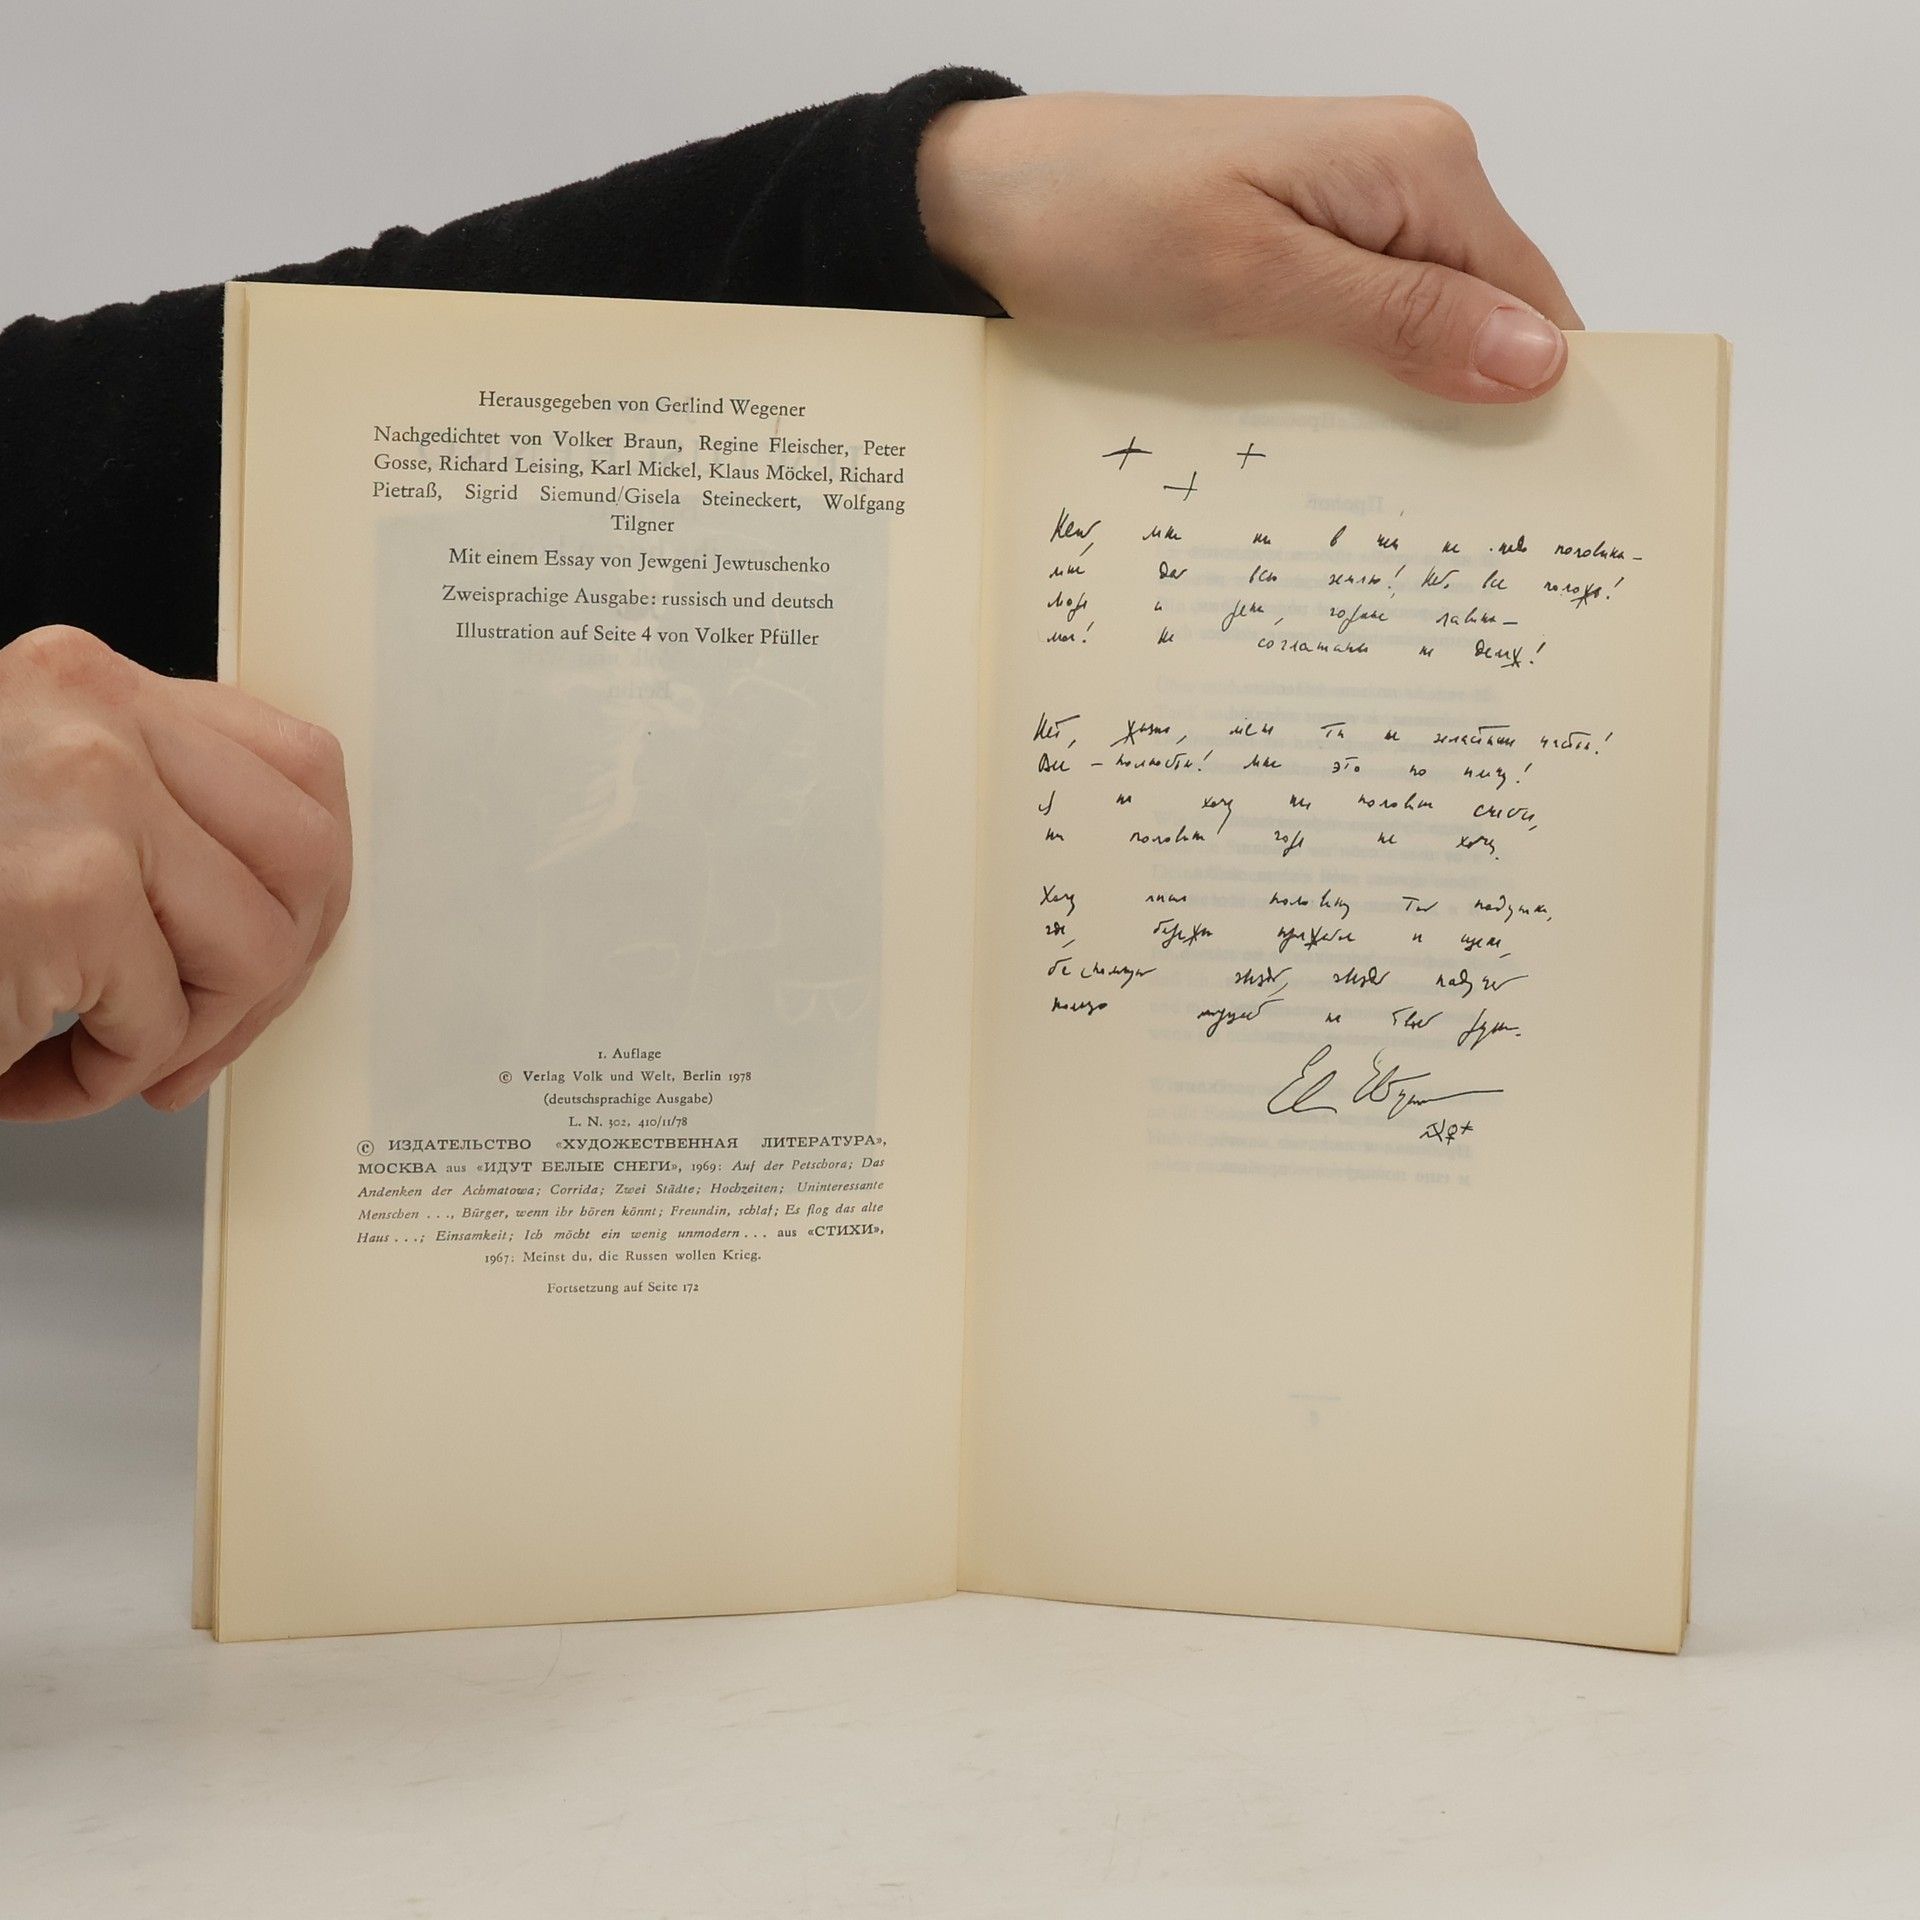 Herausgegeben von Gerlind Wegener
Nachgedichtet von Volker Braun, Regine Fleischer, Peter
Gosse, Richard Leising, Karl Mickel, Klaus Möckel, Richard
Pietraß, Sigrid Siemund/Gisela Steineckert, Wolfgang
Tilgner
Mit einem Essay von Jewgeni Jewtuschenko
Zweisprachige Ausgabe: russisch und deutsch
Illustration auf Seite 4 von Volker Pfüller
1. Auflage
© Verlag Volk und Welt, Berlin 1978
(deutschsprachige Ausgabe)
L. N. 302, 410/11/78
© ИЗДАТЕЛЬСТВО «ХУДОЖЕСТВЕННАЯ ЛИТЕРАТУРА»,
МОСКВА aus «ИДУТ БЕЛЫЕ СНЕГИ», 1969: Auf der Petschora; Das
Andenken der Achmatowa; Corrida; Zwei Städte; Hochzeiten; Uninteressante
Menschen . . ., Bürger, wenn ihr hören könnt; Freundin, schlaf; Es flog das alte
Haus . . .; Einsamkeit; Ich möcht ein wenig unmodern . . . aus «СТИХИ»,
1967: Meinst du, die Russen wollen Krieg.
Fortsetzung auf Seite 172
Нет, мне ни в чем не надо половины –
мне дай всю землю! Нет, все положь!
Моря и реки, горные лавины –
мои! Не соглашаюсь на дележ!
Нет, жизнь, меня ты не заластишь частью!
Все – полностью! Мне это по плечу!
Я не хочу ни половины счастья,
ни половины горя не хочу.
Хочу лишь половину той подушки,
где, бережно прижатое к щеке,
беспомощной звездой, звездой падучей
кольцо мерцает на твоей руке.